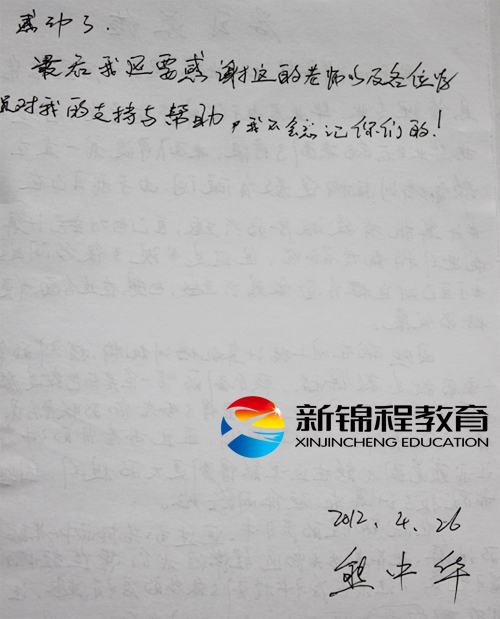 感动了.
最后我还要感谢这的老师以及各位学
员对我的支持与帮助,我不会忘记你们的!
新锦程教育
XINJINCHENG EDUCATION
2012.4.26
熊中华